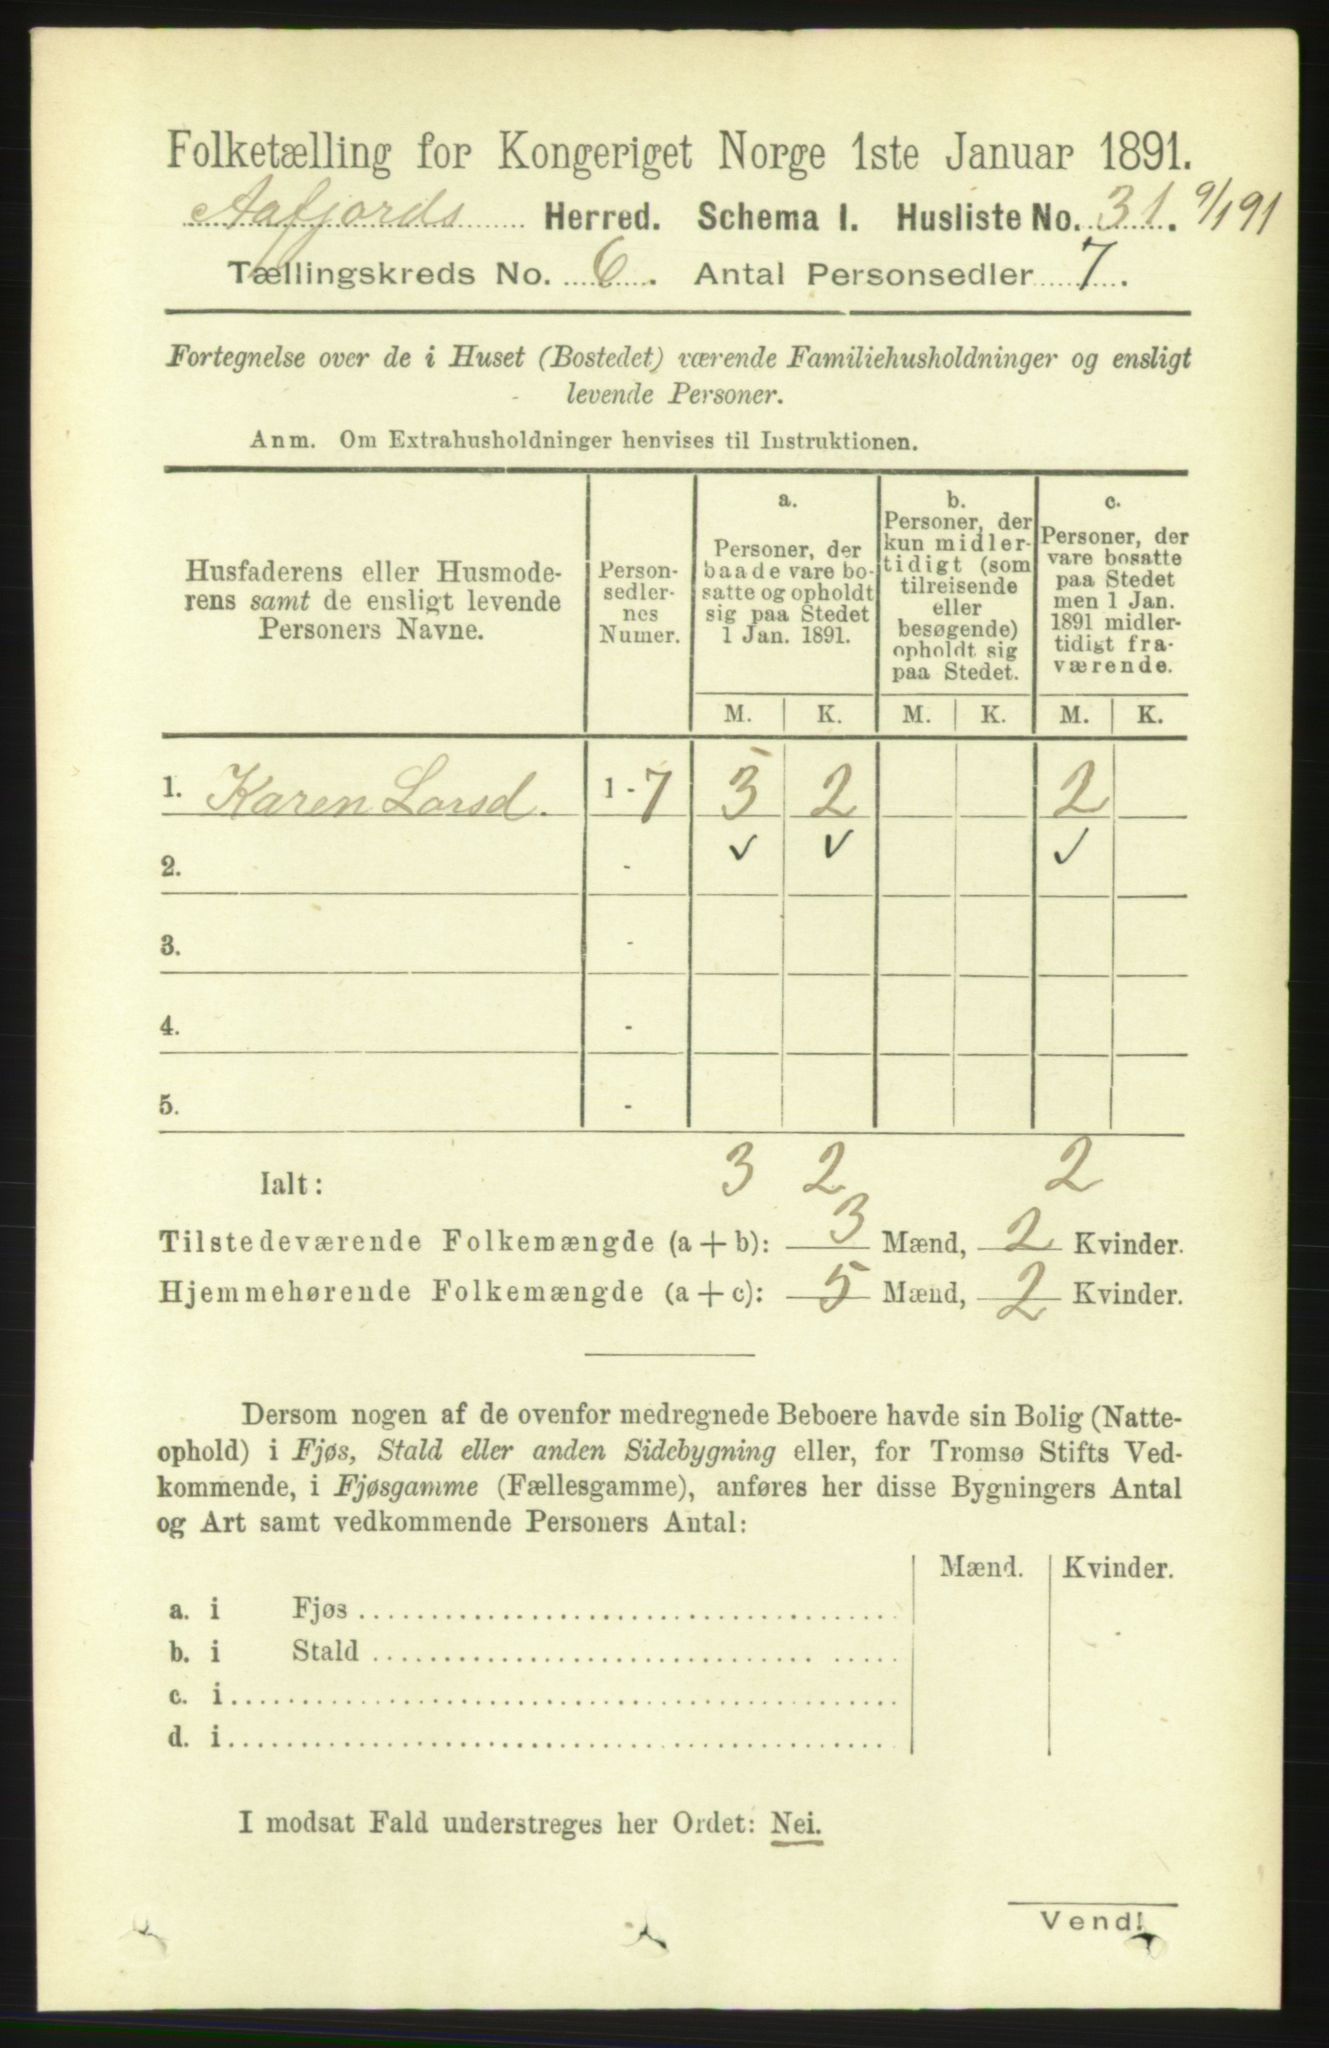 Folketælling for Kongeriget Norge 1ste Januar 1891.
Aafjords Herred. Schema I. Husliste No. 31. 9/1 91
Tællingskreds No. 6. Antal Personsedler 7.
Fortegnelse over de i Huset (Bostedet) værende Familiehusholdninger og ensligt
levende Personer.
Anm. Om Extrahusholdninger henvises til Instruktionen.
Husfaderens eller Husmode-
rens samt de ensligt levende
Personers Navne.
Person-
sedler-
nes
Numer.
a.
Personer, der
baade vare bo-
satte og opholdt
sig paa Stedet
1 Jan. 1891.
b.
Personer, der
kun midler-
tidigt (som
tilreisende
eller
besøgende)
opholdt sig
paa Stedet.
c.
Personer, der
vare bosatte
paa Stedet
men 1 Jan.
1891 midler-
tidigt fra-
værende.
M. K. M. K. M. K.
1. Karen Larsd. 1-7 3 2 2
2. - ✓ ✓ ✓
3. -
4. -
5. -
Ialt: 3 2 2
Tilstedeværende Folkemængde (a+b): 3 Mænd, 2 Kvinder.
Hjemmehørende Folkemængde (a+c): 5 Mænd, 2 Kvinder.
Dersom nogen af de ovenfor medregnede Beboere havde sin Bolig (Natte-
ophold) i Fjøs, Stald eller anden Sidebygning eller, for Tromsø Stifts Ved-
kommende, i Fjøsgamme (Fællesgamme), anføres her disse Bygningers Antal
og Art samt vedkommende Personers Antal:
Mænd. Kvinder.
a. i Fjøs
b. i Stald
c. i
d. i
I modsat Fald understreges her Ordet: Nei.
Vend!